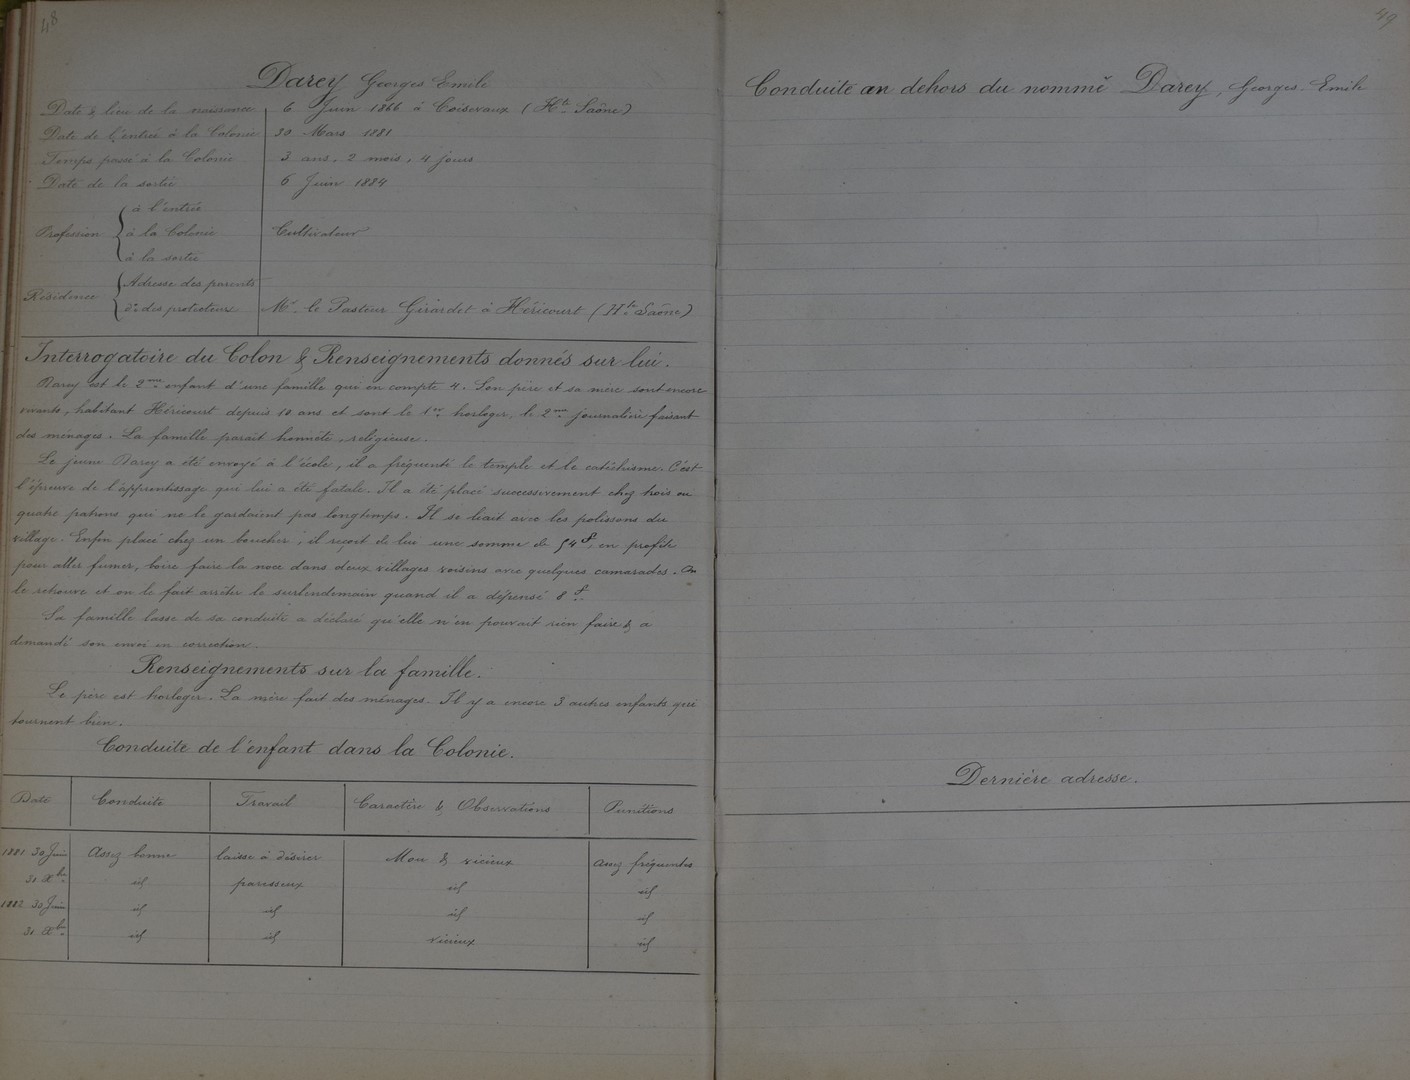 48
Darey Georges Emile
Date & lieu de la naissance 6 Juin 1866 à Coisevaux (Hte Saône)
Date de l'entrée à la Colonie 30 Mars 1881
Temps passé à la Colonie 3 ans. 2 mois, 4 jours
Date de la sortie 6 Juin 1884
Profession à l'entrée
à la Colonie Cultivateur
à la sortie
Résidence Adresse des parents
do des protecteurs Mr. le Pasteur Girardet à Héricourt (Hte Saône)
Interrogatoire du Colon & Renseignements donnés sur lui.
Darey est le 2me enfant d'une famille qui en compte 4. Son père et sa mère sont encore
vivants, habitant Héricourt depuis 10 ans et sont le 1er horloger, le 2me journalière faisant
des ménages. La famille paraît honnête, religieuse.
Le jeune Darey a été envoyé à l'école, il a fréquenté le temple et le catéchisme. C'est
l'épreuve de l'apprentissage qui lui a été fatale. Il a été placé successivement chez trois ou
quatre patrons qui ne le gardaient pas longtemps. Il se liait avec les polissons du
village. Enfin placé chez un boucher, il reçoit de lui une somme de 54f, en profite
pour aller fumer, boire faire la noce dans deux villages voisins avec quelques camarades. On
le retrouve et on le fait arrêter le surlendemain quand il a dépensé 8f.
Sa famille lasse de sa conduite a déclaré qu'elle n'en pouvait rien faire & a
demandé son envoi en correction.
Renseignements sur la famille.
Le père est horloger. La mère fait des ménages. Il y a encore 3 autres enfants qui
tournent bien.
Conduite de l'enfant dans la Colonie.
Date Conduite Travail Caractère & Observations Punitions
1881 30 Juin Assez bonne laisse à désirer Mou & vicieux assez fréquentes
31 Xbre id paresseux id id
1882 30 Juin id id id id
31 Xbre id id vicieux id
49
Conduite en dehors du nommé Darey, Georges Emile
Dernière adresse.